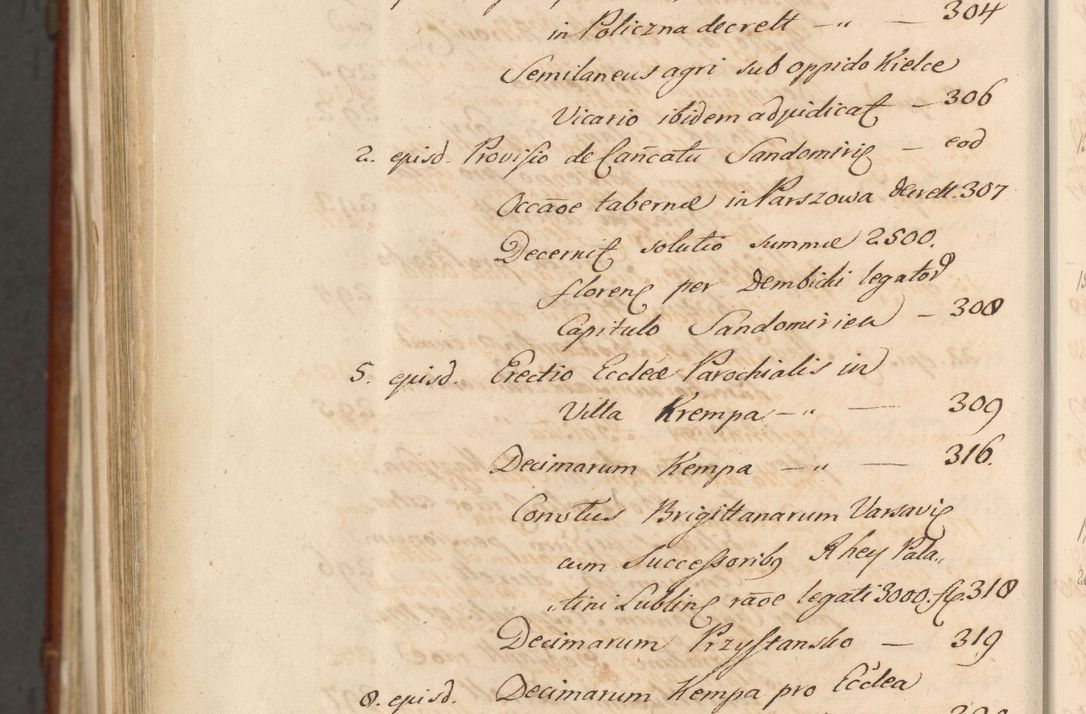 in Policzna decrett — „ — 304
Semilaneus agri sub oppido Kielce
Vicario ibidem adjudicat — 306
2. episd. Provisio de Cancātu Sandomiriȩ — eod
Occāoe tabernæ in Parszowa decrett. 307
Decernit solutio summæ 2500.
florenȩ per Dembicki legatoꝝ
Capitulo Sandomirien — 308
5. episd. Erectio Eccleæ Parochialis in
Villa Krempa — „ — 309
Decimarum Kempa — „ — 316.
Convtus Brigittanarum Varsaviȩ
cum Successoribꝫ Rhey Pala„
tini Lublinȩ rāoe legati 3000. fl. 318
Decimarum Przystansko — 319
8. episd. Decimarum Kempa pro Ecclea